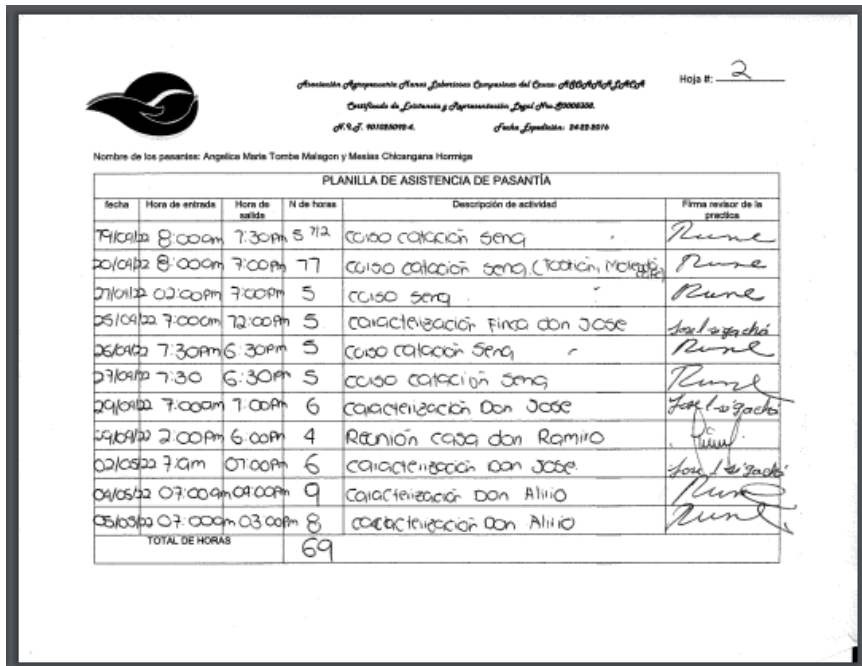 Hoja #: 2
Asociación Agropecuaria Manos Laboriosas Campesinas del Cauca
Certificado de Existencia y Representación Legal Nro.
Fecha Expedición:
Nombre de los pasantes: Angelica Maria Tombe Malagon y Mesias Chicangana Hormiga
PLANILLA DE ASISTENCIA DE PASANTÍA
fecha Hora de entrada Hora de salida N de horas Descripción de actividad Firma revisor de la practica
19/04/22 8:00am 1:30pm 5 1/2 curso catación sena
20/04/22 8:00am 7:00pm 11 curso catación sena (Tostión,
21/04/22 02:00pm 7:00pm 5 curso sena
25/04/22 7:00am 12:00pm 5 caracterización Finca don Jose
26/04/22 1:30pm 6:30pm 5 curso catación sena
27/04/22 1:30 6:30pm 5 curso catación sena
29/04/22 7:00am 1:00pm 6 caracterización Don Jose
29/04/22 2:00pm 6:00pm 4 Reunión casa don Ramiro
02/05/22 7:am 01:00pm 6 caracterización Don Jose.
04/05/22 07:00am 04:00pm 9 Caracterización Don Alirio
05/05/22 07:00am 03:00pm 8 caracterización Don Alirio
TOTAL DE HORAS 69